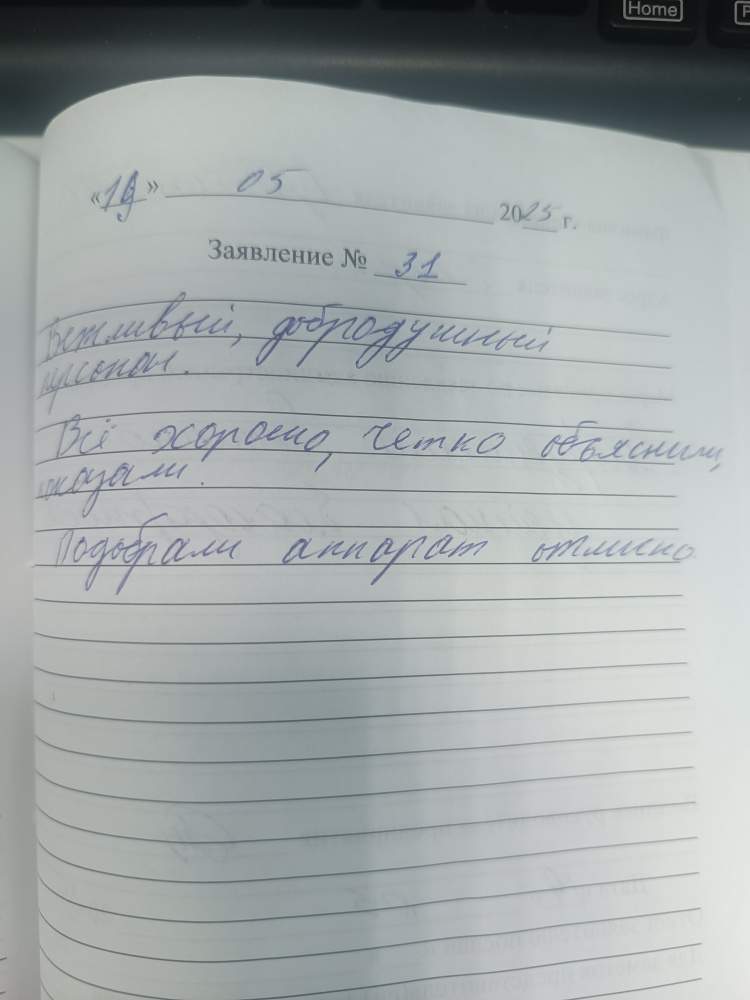 Home
«19» 05 2025 г.
Заявление № 31
Вежливый, добродушный
персонал.
Всё хорошо, четко объяснили,
показали.
Подобрали аппарат отлично